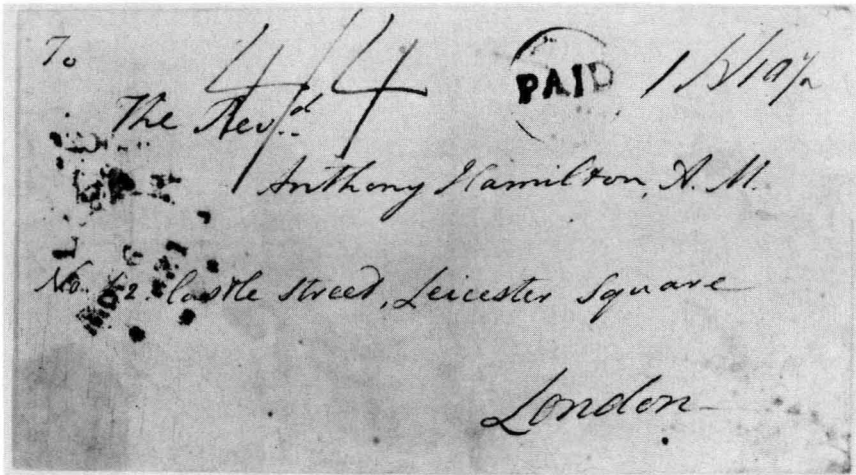 To
4/4
PAID
The Rev.d
Anthony Hamilton, A. M.
No. 42. Castle Street, Leicester Square
London